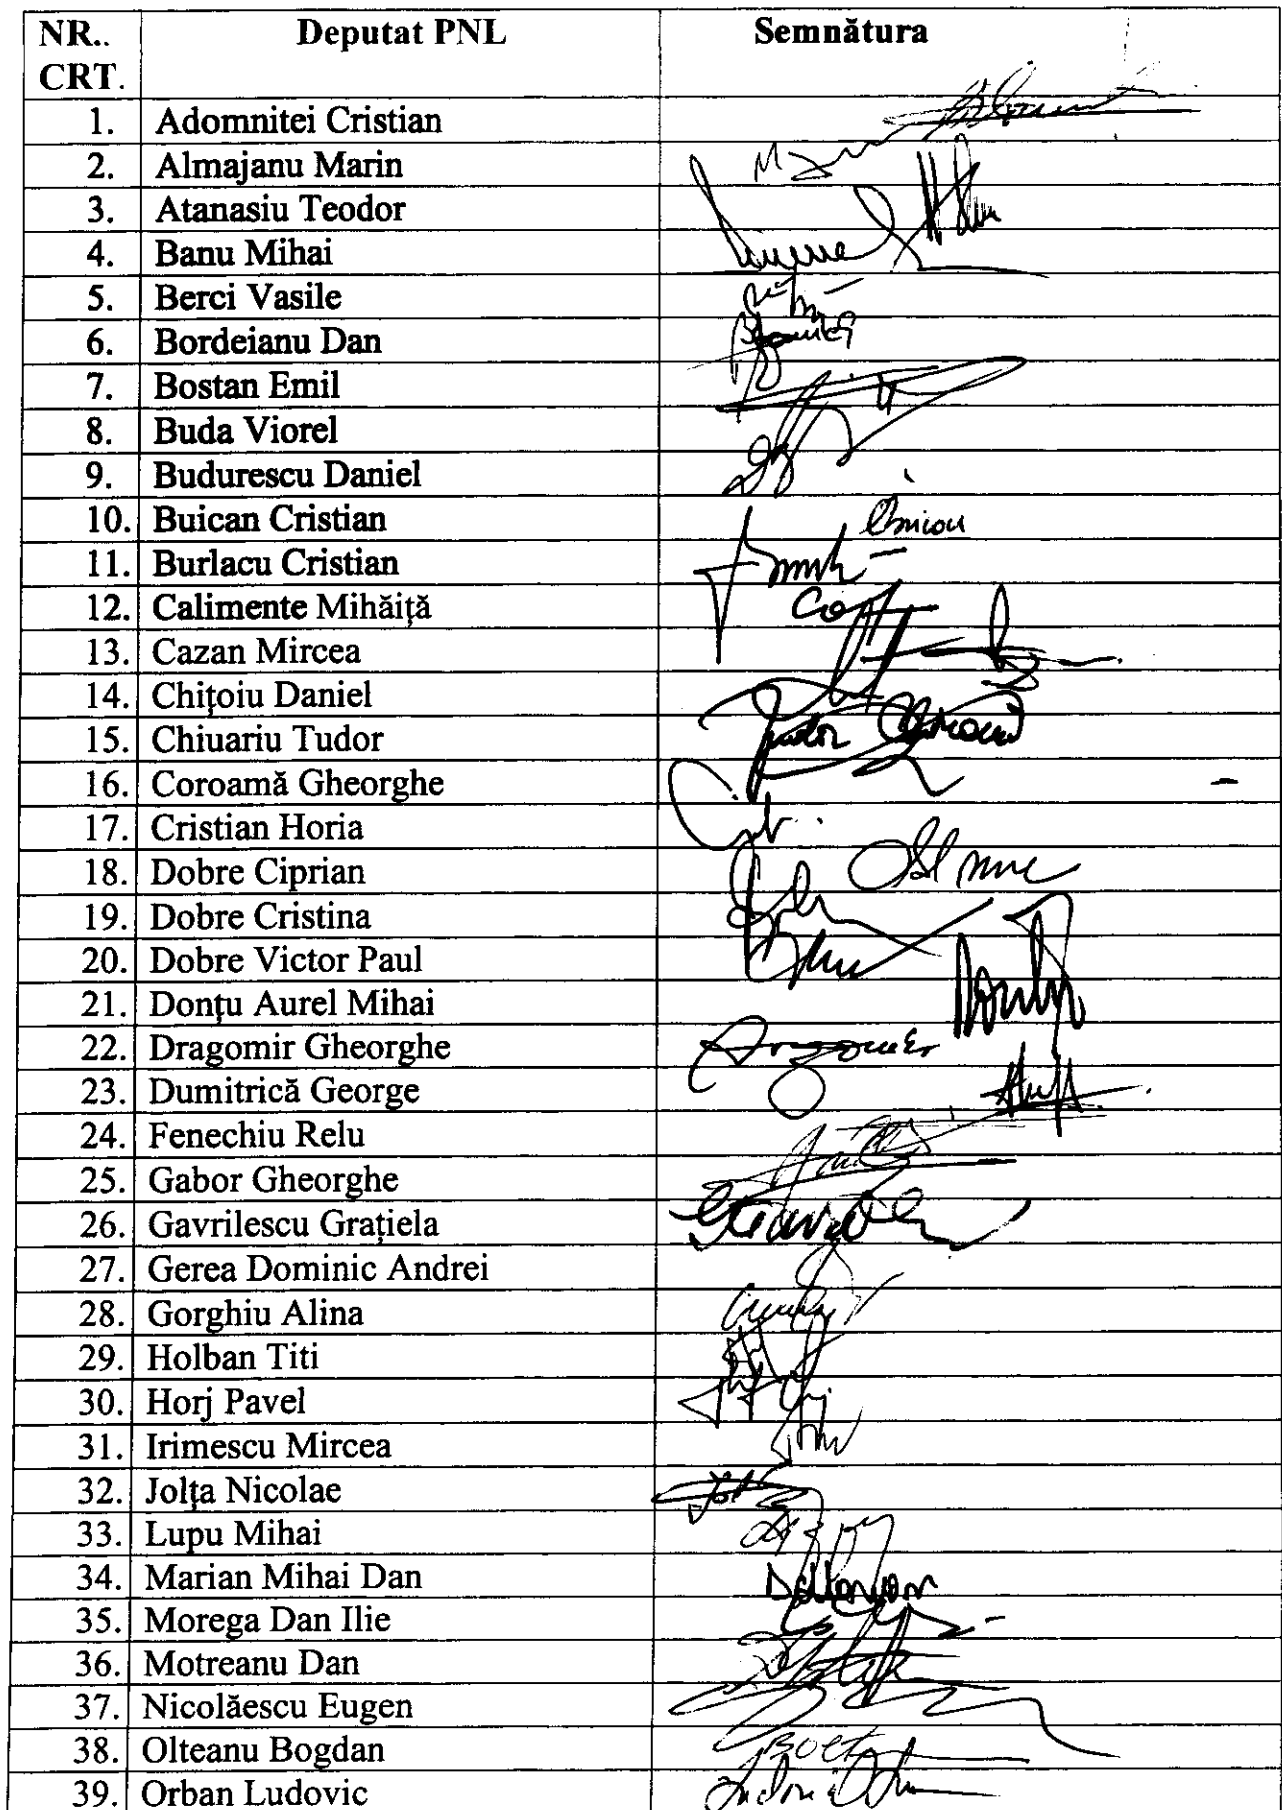 NR.. Deputat PNL Semnătura
CRT.
1. Adomnitei Cristian
2. Almajanu Marin
3. Atanasiu Teodor
4. Banu Mihai
5. Berci Vasile
6. Bordeianu Dan
7. Bostan Emil
8. Buda Viorel
9. Budurescu Daniel
10. Buican Cristian
11. Burlacu Cristian
12. Calimente Mihăiță
13. Cazan Mircea
14. Chițoiu Daniel
15. Chiuariu Tudor
16. Coroamă Gheorghe
17. Cristian Horia
18. Dobre Ciprian
19. Dobre Cristina
20. Dobre Victor Paul
21. Donțu Aurel Mihai
22. Dragomir Gheorghe
23. Dumitrică George
24. Fenechiu Relu
25. Gabor Gheorghe
26. Gavrilescu Grațiela
27. Gerea Dominic Andrei
28. Gorghiu Alina
29. Holban Titi
30. Horj Pavel
31. Irimescu Mircea
32. Jolța Nicolae
33. Lupu Mihai
34. Marian Mihai Dan
35. Morega Dan Ilie
36. Motreanu Dan
37. Nicolăescu Eugen
38. Olteanu Bogdan
39. Orban Ludovic